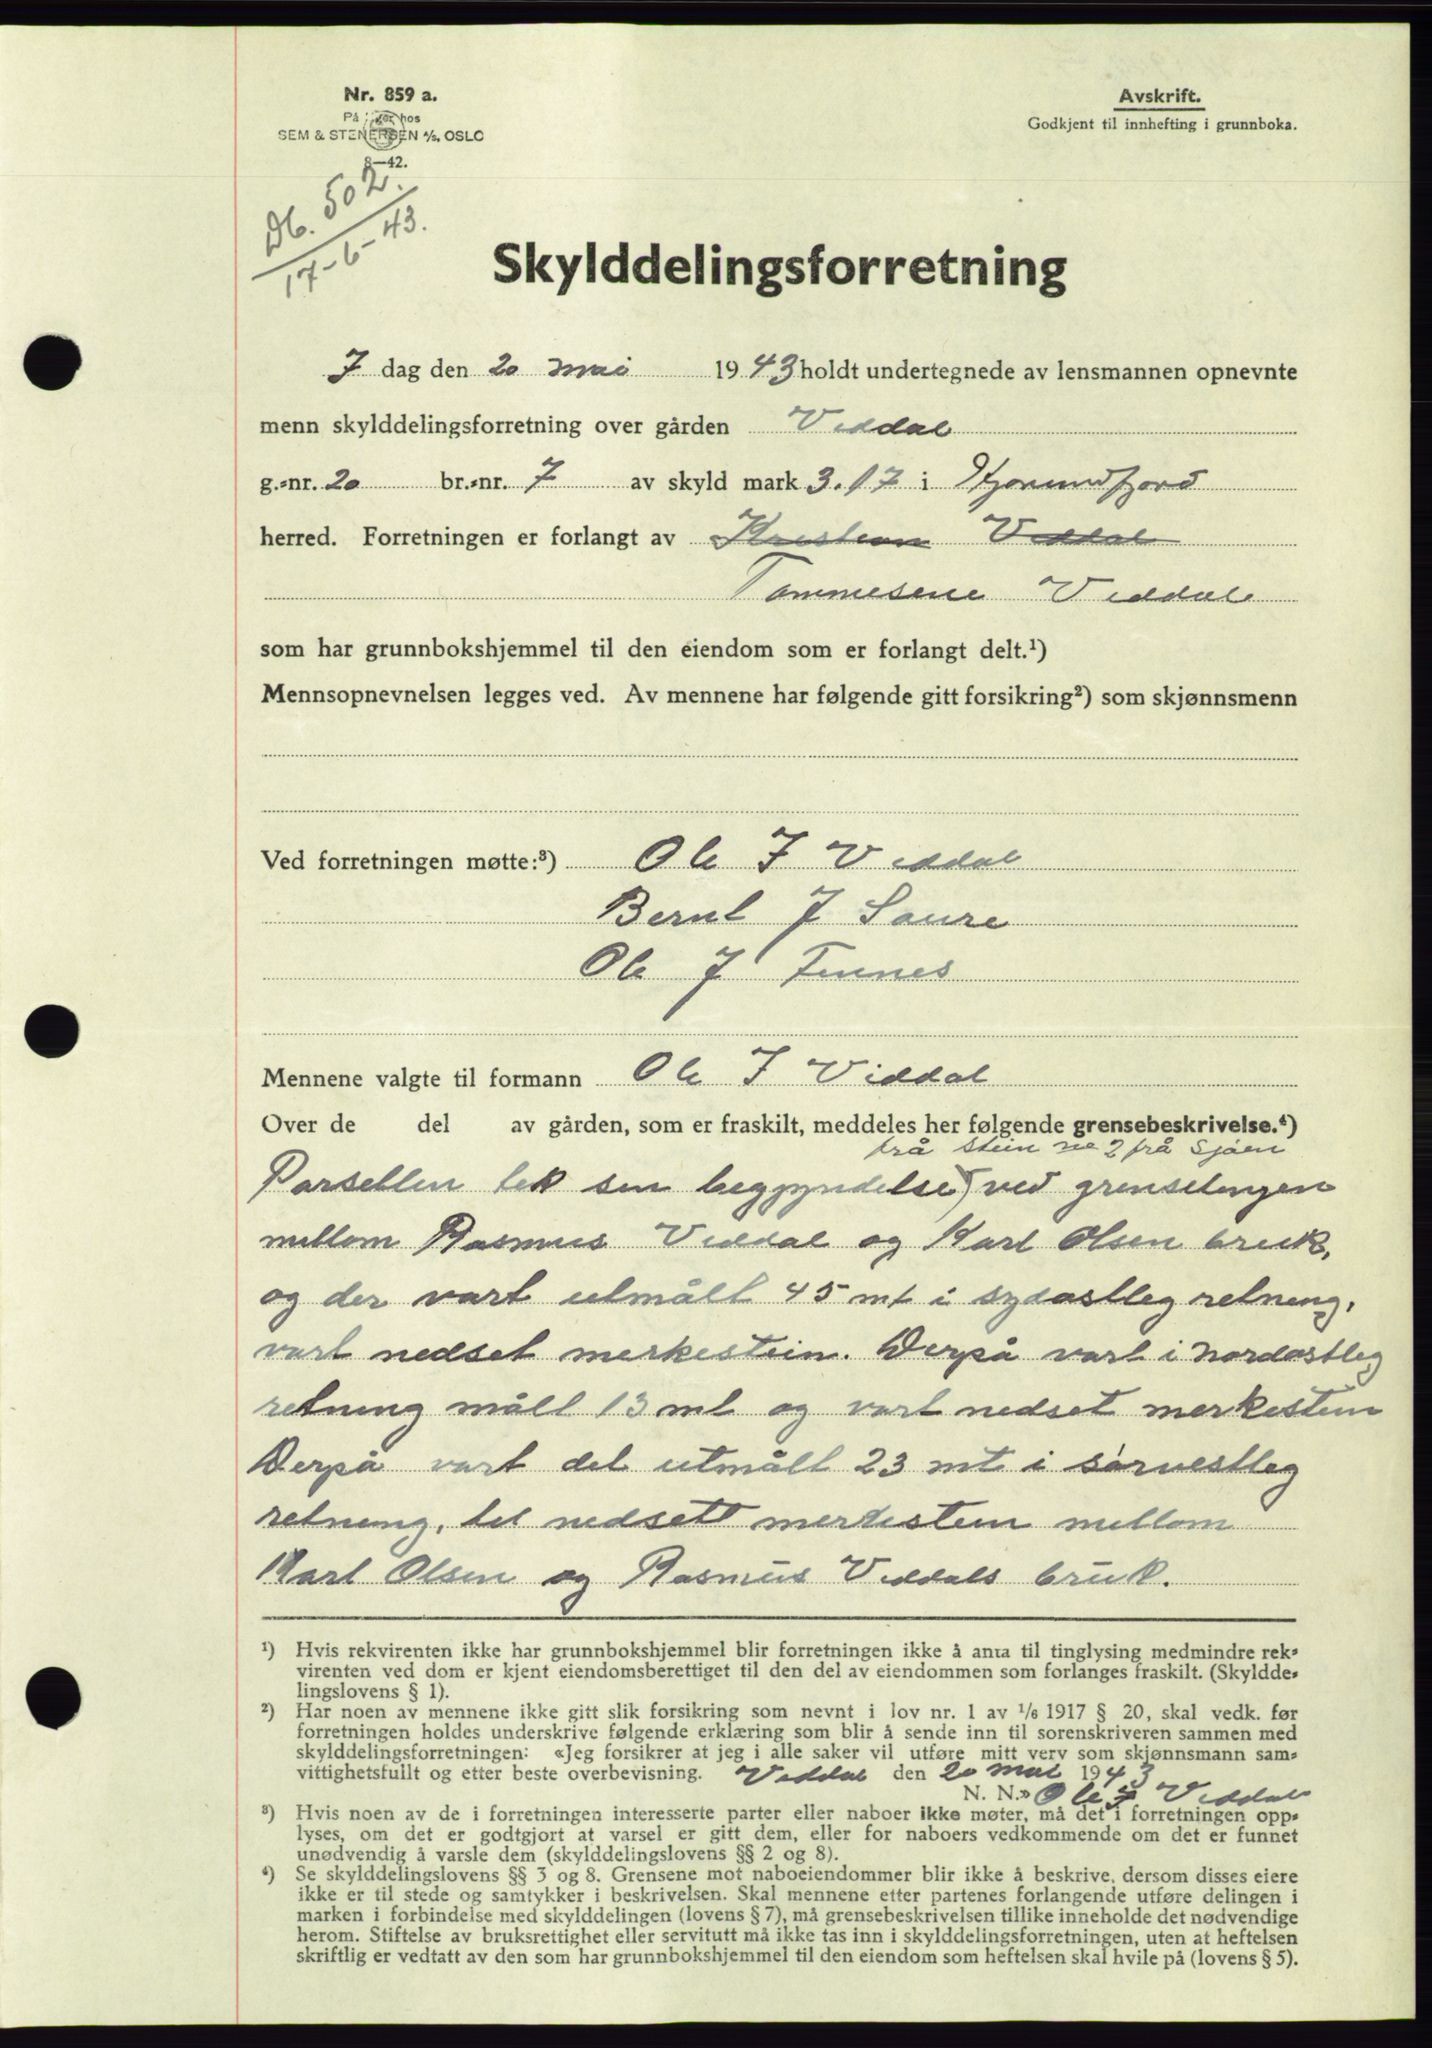 Nr. 859 a.
På lager hos
SEM & STENERSEN A/S, OSLO
8—42.
Avskrift.
Godkjent til innhefting i grunnboka.
Db. 502.
17-6-43.
Skylddelingsforretning
I dag den 20 mai 1943 holdt undertegnede av lensmannen opnevnte
menn skylddelingsforretning over gården Viddal
g.-nr. 20 br.-nr. 7 av skyld mark 3.17 i Hjørundfjord
herred. Forretningen er forlangt av Kristian Viddal
Tommesene Viddal
som har grunnbokshjemmel til den eiendom som er forlangt delt.¹)
Mennsopnevnelsen legges ved. Av mennene har følgende gitt forsikring²) som skjønnsmenn
Ved forretningen møtte:³) Ole J Viddal
Bernt J Saure
Ole J Finnes
Mennene valgte til formann Ole J Viddal
Over de del av gården, som er fraskilt, meddeles her følgende grensebeskrivelse.⁴)
frå stein no 2 frå sjøen
Parsellen tek sin begyndelse ved grenselinjen
mellom Rasmus Viddal og Karl Olsen bruk,
og der vart utmålt 45 mt i sydøstleg retning,
vart nedset merkestein. Derpå vart i nordøstleg
retning målt 13 mt og vart nedset merkestein
Derpå vart det utmålt 23 mt i sørvestleg
retning, til nedsett merkestein mellom
Karl Olsen og Rasmus Viddals bruk.
¹) Hvis rekvirenten ikke har grunnbokshjemmel blir forretningen ikke å anta til tinglysing medmindre rek-
virenten ved dom er kjent eiendomsberettiget til den del av eiendommen som forlanges fraskilt. (Skyldde-
lingslovens § 1).
²) Har noen av mennene ikke gitt slik forsikring som nevnt i lov nr. 1 av 1/6 1917 § 20, skal vedk. før
forretningen holdes underskrive følgende erklæring som blir å sende inn til sorenskriveren sammen med
skylddelingsforretningen: «Jeg forsikrer at jeg i alle saker vil utføre mitt verv som skjønnsmann sam-
vittighetsfullt og etter beste overbevisning. Viddal den 20 mai 1943
N. N.» Ole J Viddal
³) Hvis noen av de i forretningen interesserte parter eller naboer ikke møter, må det i forretningen opp-
lyses, om det er godtgjort at varsel er gitt dem, eller for naboers vedkommende om det er funnet
unødvendig å varsle dem (skylddelingslovens §§ 2 og 8).
⁴) Se skylddelingslovens §§ 3 og 8. Grensene mot naboeiendommer blir ikke å beskrive, dersom disses eiere
ikke er til stede og samtykker i beskrivelsen. Skal mennene etter partenes forlangende utføre delingen i
marken i forbindelse med skylddelingen (lovens § 7), må grensebeskrivelsen tillike inneholde det nødvendige
herom. Stiftelse av bruksrettighet eller servitutt må ikke tas inn i skylddelingsforretningen, uten at heftelsen
skriftlig er vedtatt av den som har grunnbokshjemmel til den eiendom som heftelsen skal hvile på (lovens § 5).